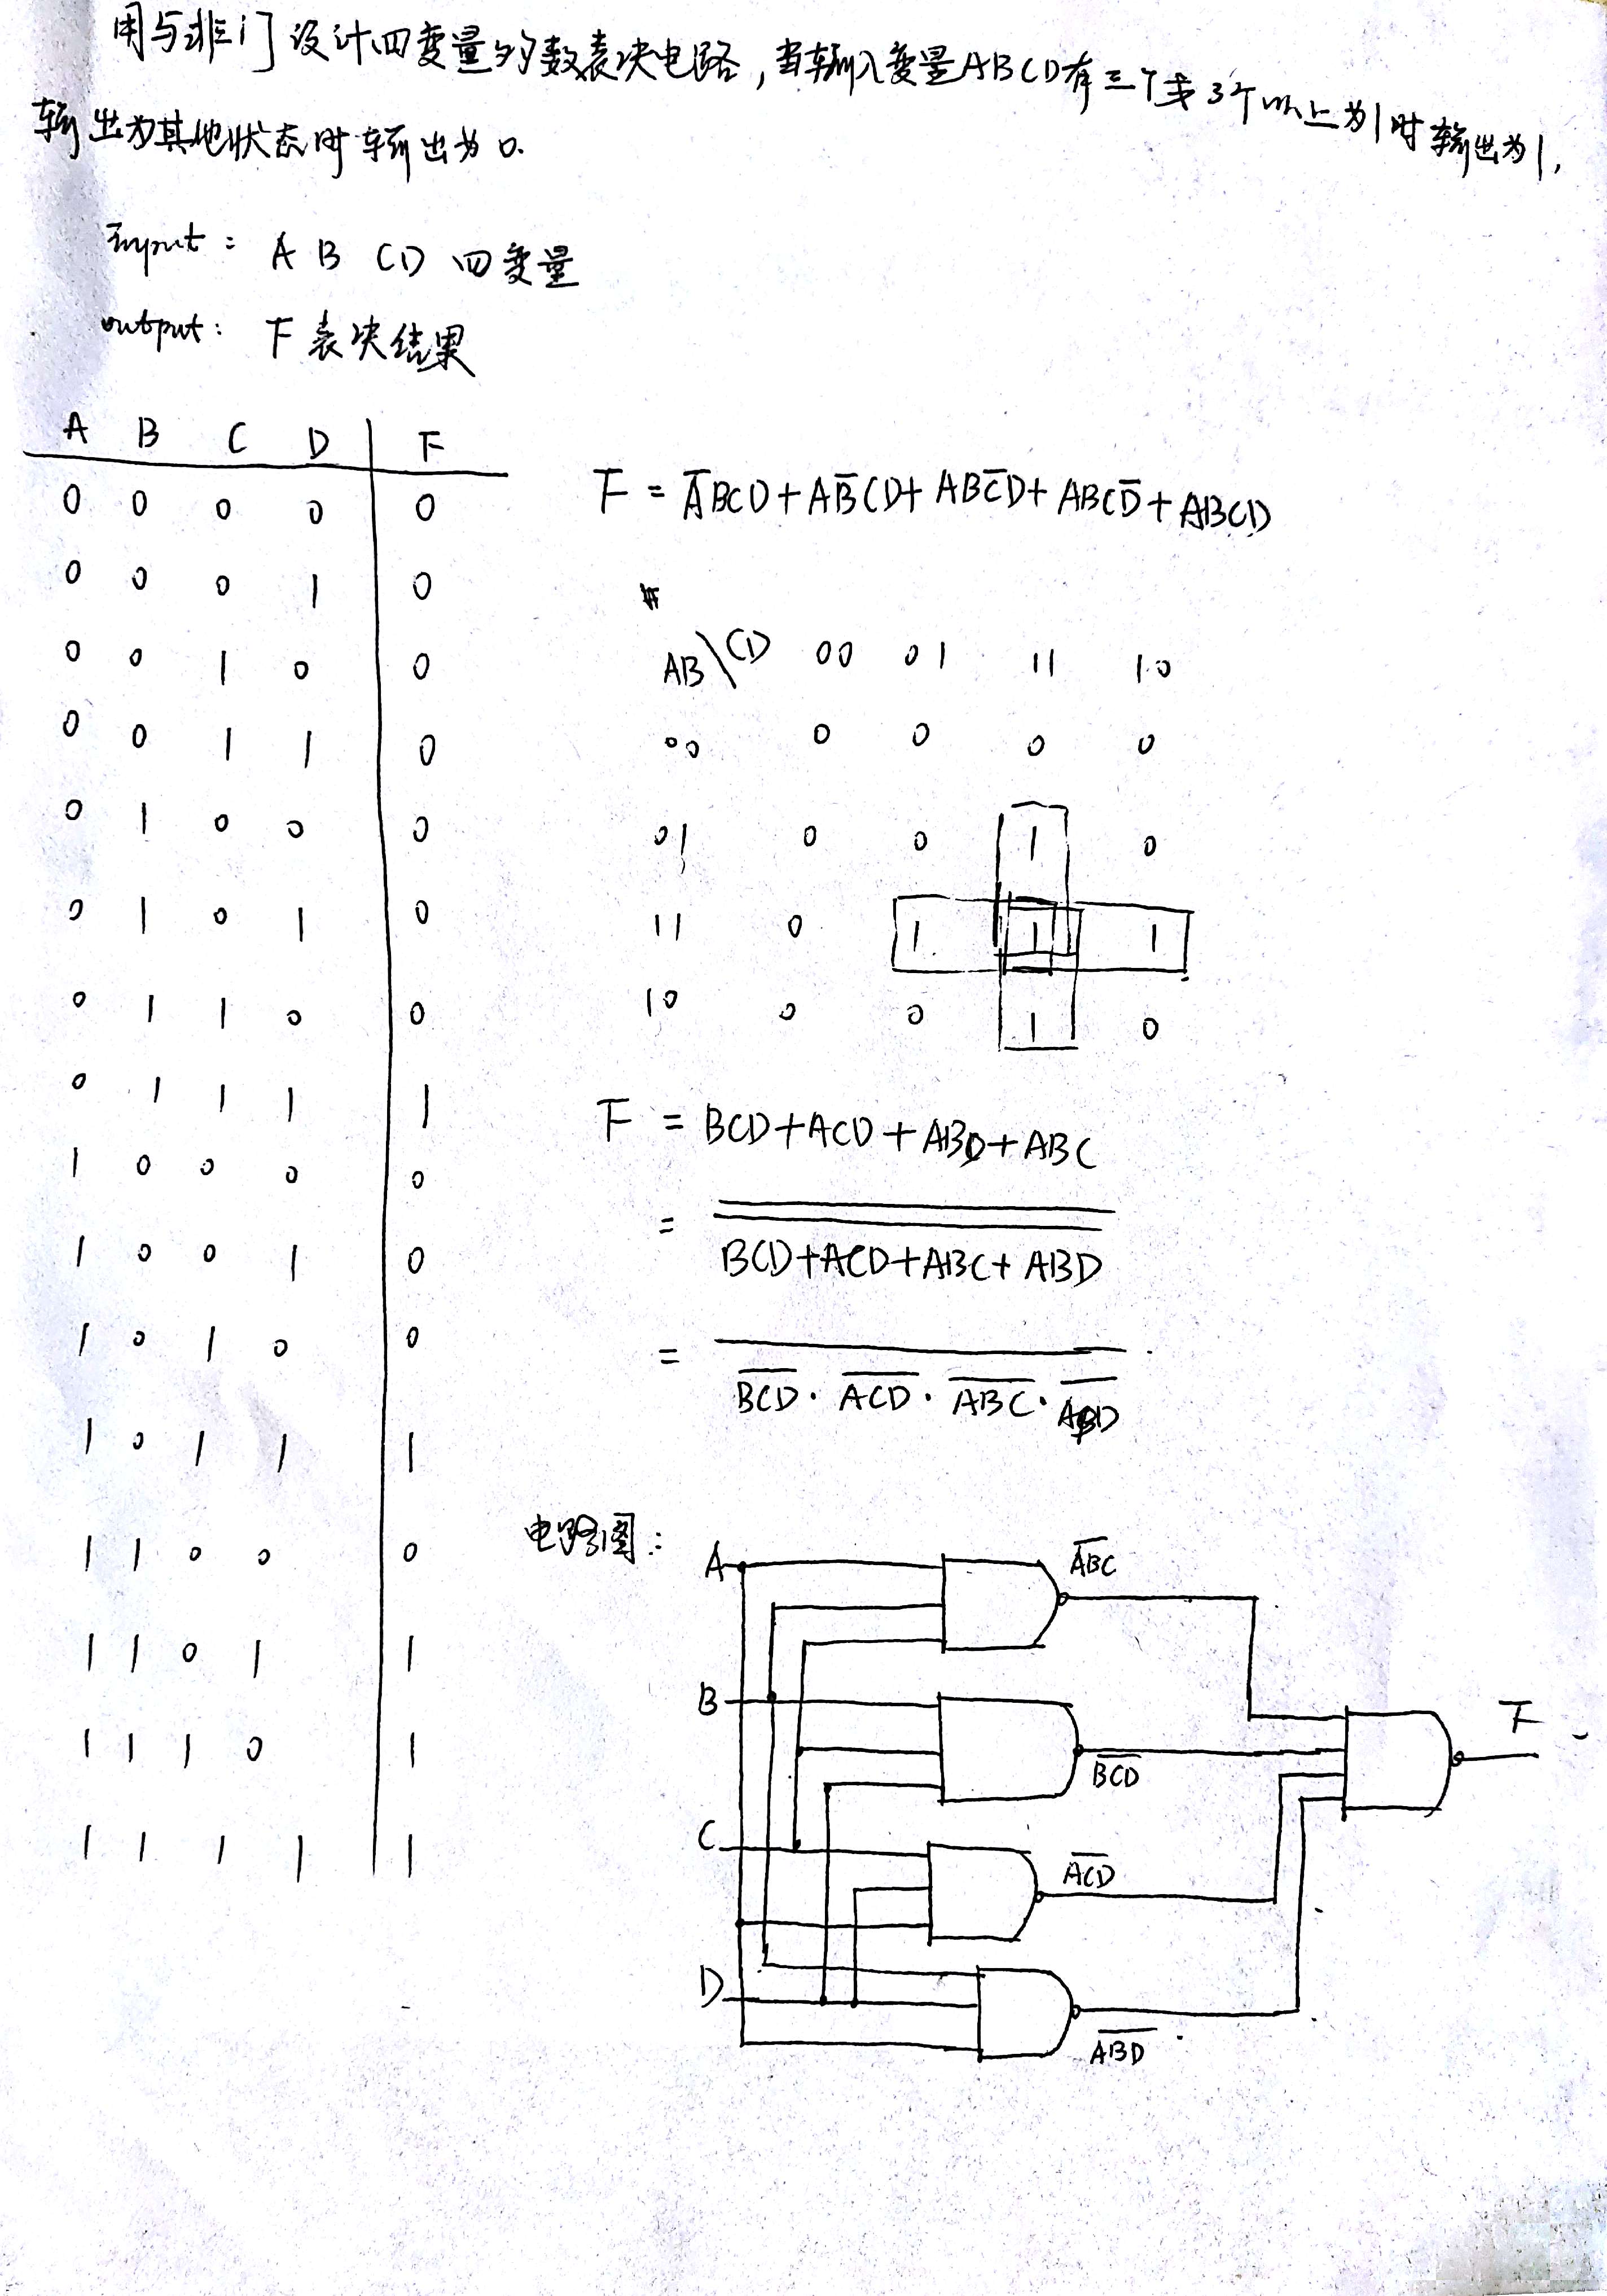 用与非门设计四变量多数表决电路，当输入变量ABCD有三个或3个以上为1时输出为1，
输出为其他状态时输出为0.
input: A B CD 四变量
output: F 表决结果
A B C D F
0 0 0 0 0
0 0 0 1 0
0 0 1 0 0
0 0 1 1 0
0 1 0 0 0
0 1 0 1 0
0 1 1 0 0
0 1 1 1 1
1 0 0 0 0
1 0 0 1 0
1 0 1 0 0
1 0 1 1 1
1 1 0 0 0
1 1 0 1 1
1 1 1 0 1
1 1 1 1 1
F = A̅BCD + AB̅CD + ABC̅D + ABCD̅ + ABCD
AB\CD 00 01 11 10
00 0 0 0 0
01 0 0 1 0
11 0 1 1 1
10 0 0 1 0
F = BCD + ACD + ABD + ABC
= \overline{\overline{BCD+ACD+ABC+ABD}}
= \overline{\overline{BCD}·\overline{ACD}·\overline{ABC}·\overline{ABD}}
电路图:
A
\overline{ABC}
B
F
\overline{BCD}
C
\overline{ACD}
D
\overline{ABD}